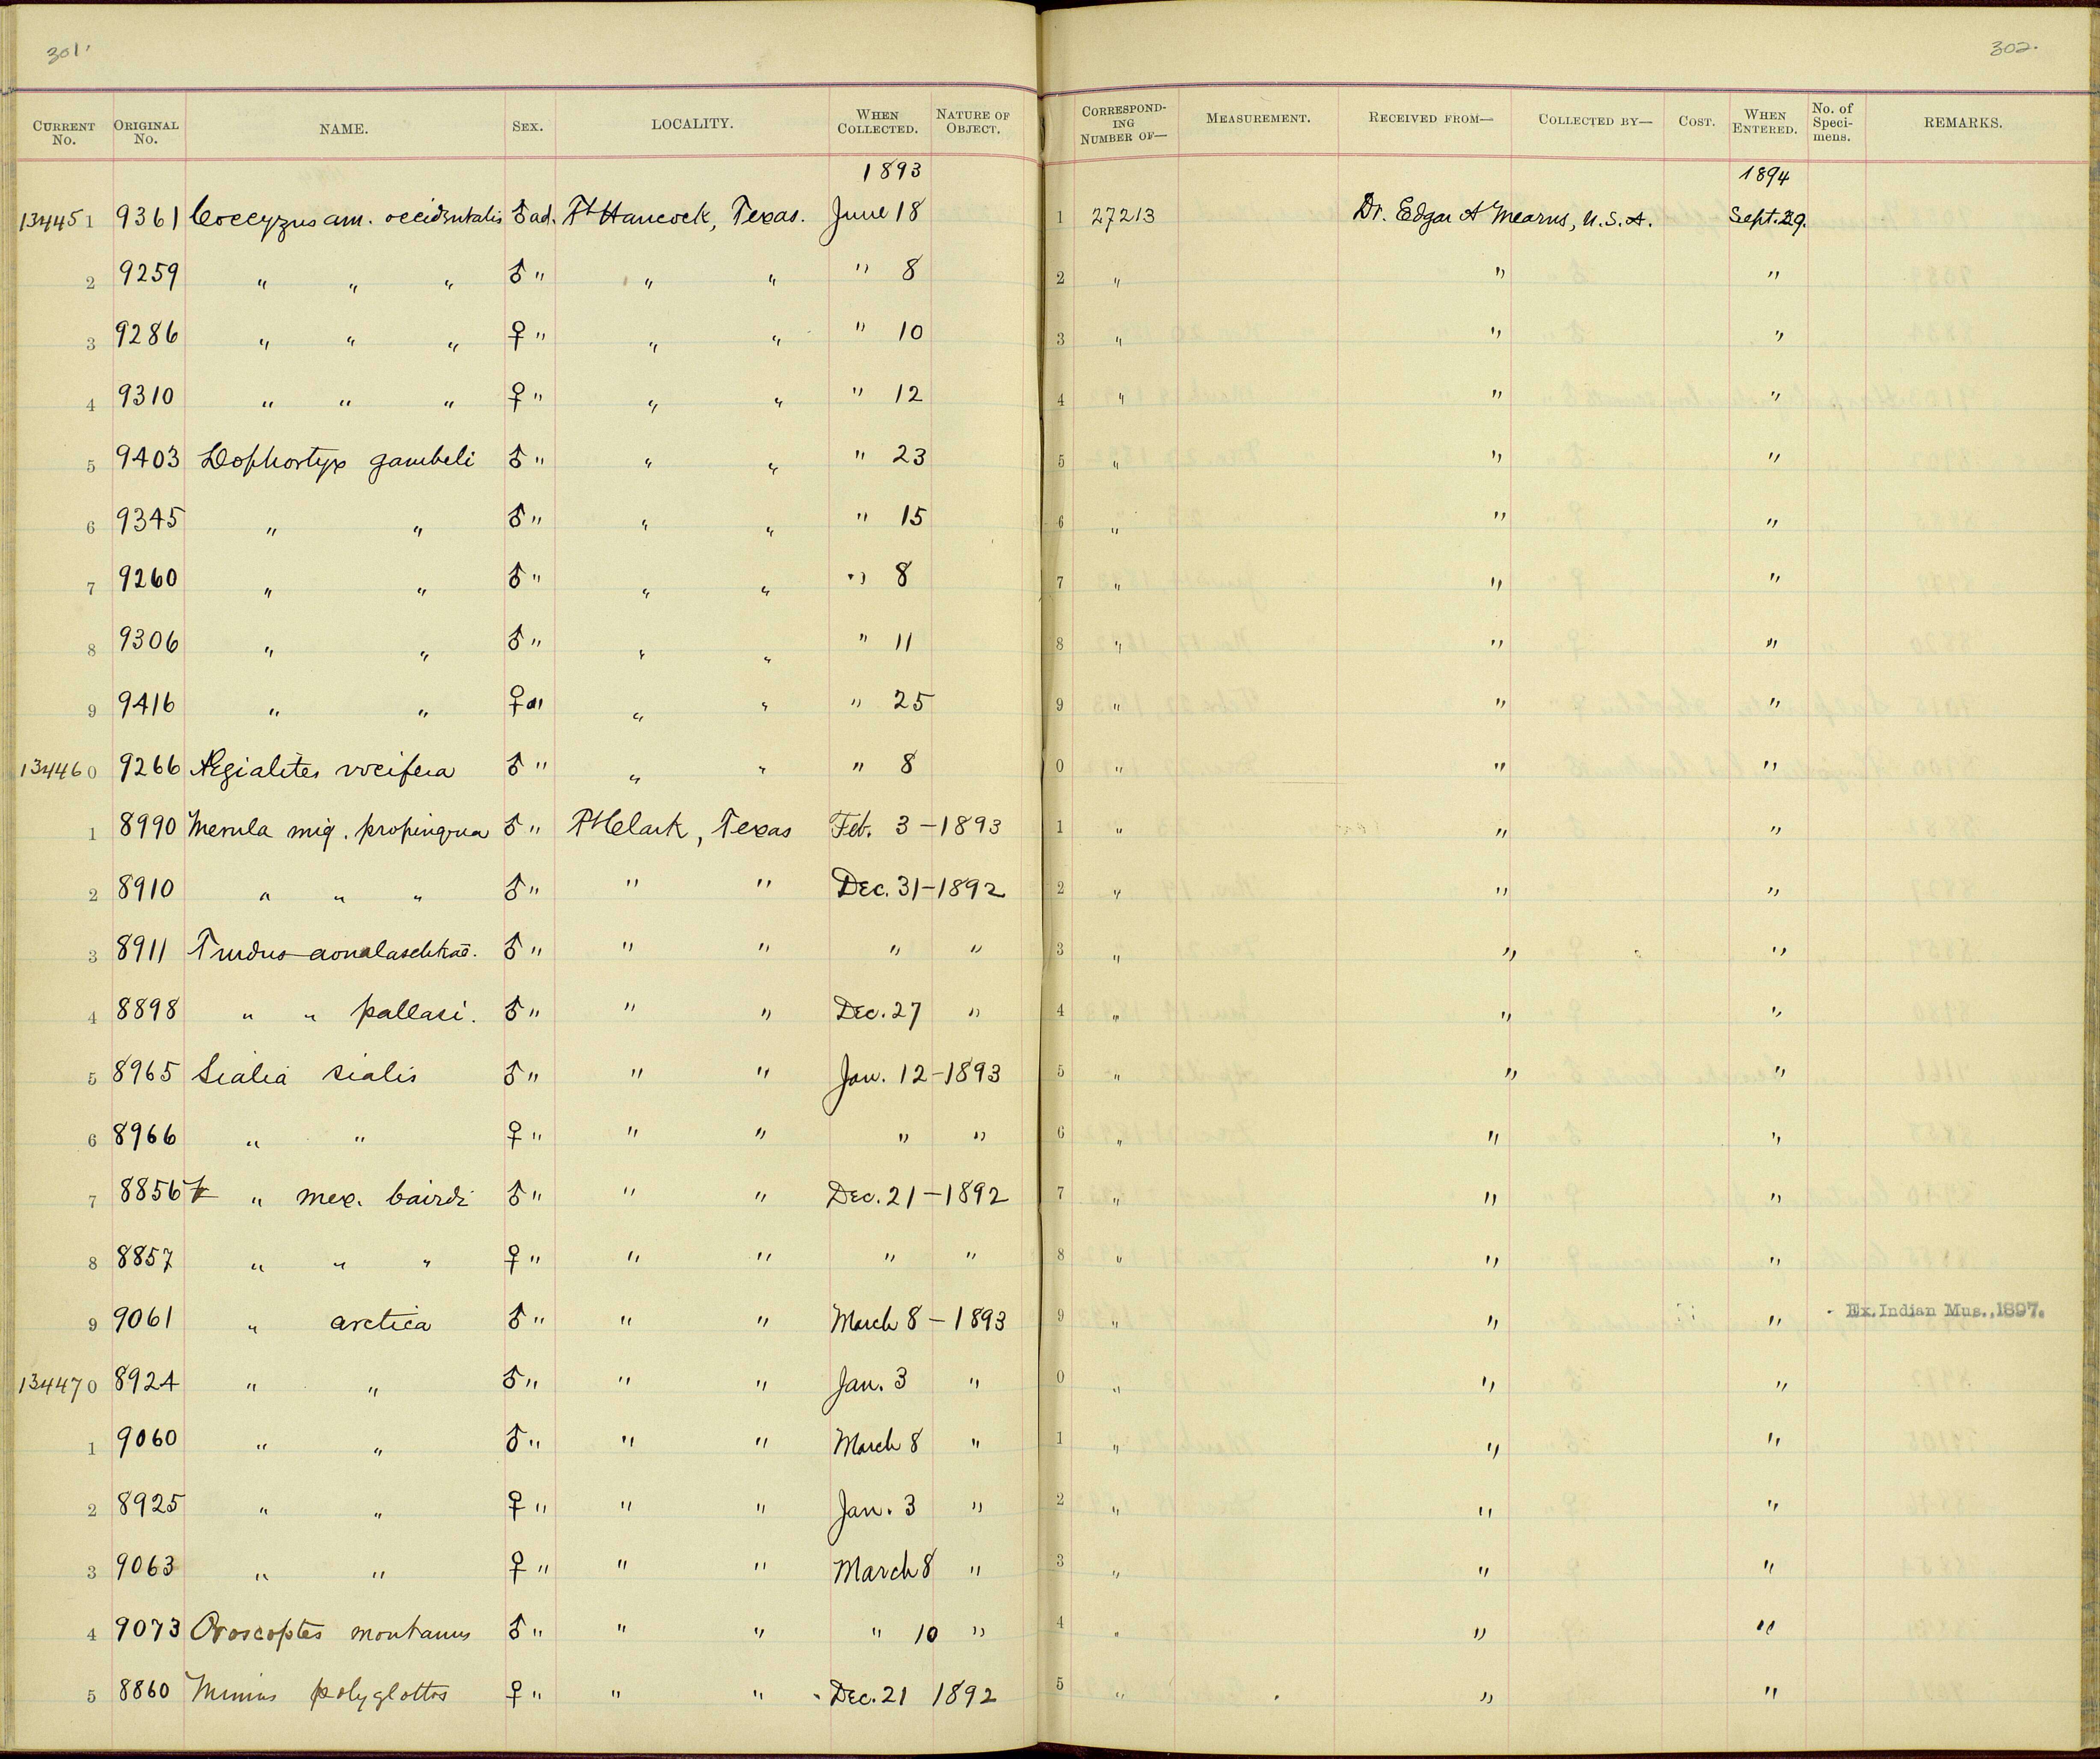 301.
302.
CURRENT No. ORIGINAL No. NAME. SEX. LOCALITY. WHEN COLLECTED. NATURE OF OBJECT. CORRESPONDING NUMBER OF— MEASUREMENT. RECEIVED FROM— COLLECTED BY— COST. WHEN ENTERED. No. of Specimens. REMARKS.
1893 1894
134451 9361 Coccyzus am. occidentalis ♂ ad. Ft Hancock, Texas. June 18 1 27213 Dr. Edgar A Mearns, U.S.A. Sept. 29.
2 9259 " " " ♂ " " " " 8 2 " " "
3 9286 " " " ♀ " " " " 10 3 " " "
4 9310 " " " ♀ " " " " 12 4 " " "
5 9403 Lophortyx gambeli ♂ " " " " 23 5 " " "
6 9345 " " ♂ " " " " 15 6 " " "
7 9260 " " ♂ " " " " 8 7 " " "
8 9306 " " ♂ " " " " 11 8 " " "
9 9416 " " ♀ " " " " 25 9 " " "
134460 9266 Ægialites vocifera ♂ " " " " 8 0 " " "
1 8990 Merula mig. propinqua ♂ " Ft Clark, Texas Feb. 3 - 1893 1 " " "
2 8910 " " " ♂ " " " Dec. 31 - 1892 2 " " "
3 8911 Turdus aonalaschkae. ♂ " " " " " 3 " " "
4 8898 " " pallasi. ♂ " " " Dec. 27 " 4 " " "
5 8965 Sialia sialis ♂ " " " Jan. 12 - 1893 5 " " "
6 8966 " " ♀ " " " " " 6 " " "
7 8856 " mex. bairdi ♂ " " " Dec. 21 - 1892 7 " " "
8 8857 " " " ♀ " " " " " 8 " " "
9 9061 " arctica ♂ " " " March 8 - 1893 9 " " " Ex. Indian Mus., 1897.
134470 8924 " " ♂ " " " Jan. 3 " 0 " " "
1 9060 " " ♂ " " " March 8 " 1 " " "
2 8925 " " ♀ " " " Jan. 3 " 2 " " "
3 9063 " " ♀ " " " March 8 " 3 " " "
4 9073 Oroscoptes montanus ♂ " " " " 10 " 4 " " "
5 8860 Mimus polyglottos ♀ " " " Dec. 21 1892 5 " " "